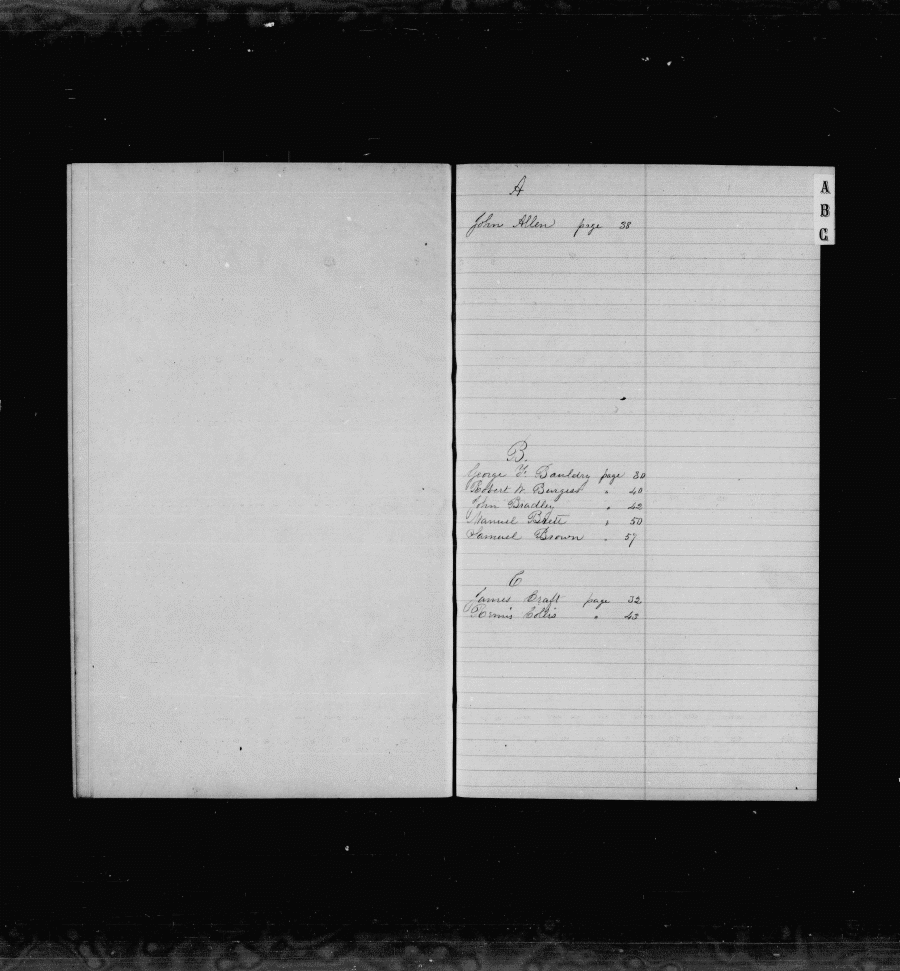 A
John Allen page 38
B.
George F. Bauldry page 30
Robert W. Burgess " 40
John Bradley " 42
Manuel " 50
Samuel Brown " 57
C
James Craft page 32
Collis " 43
A
B
C